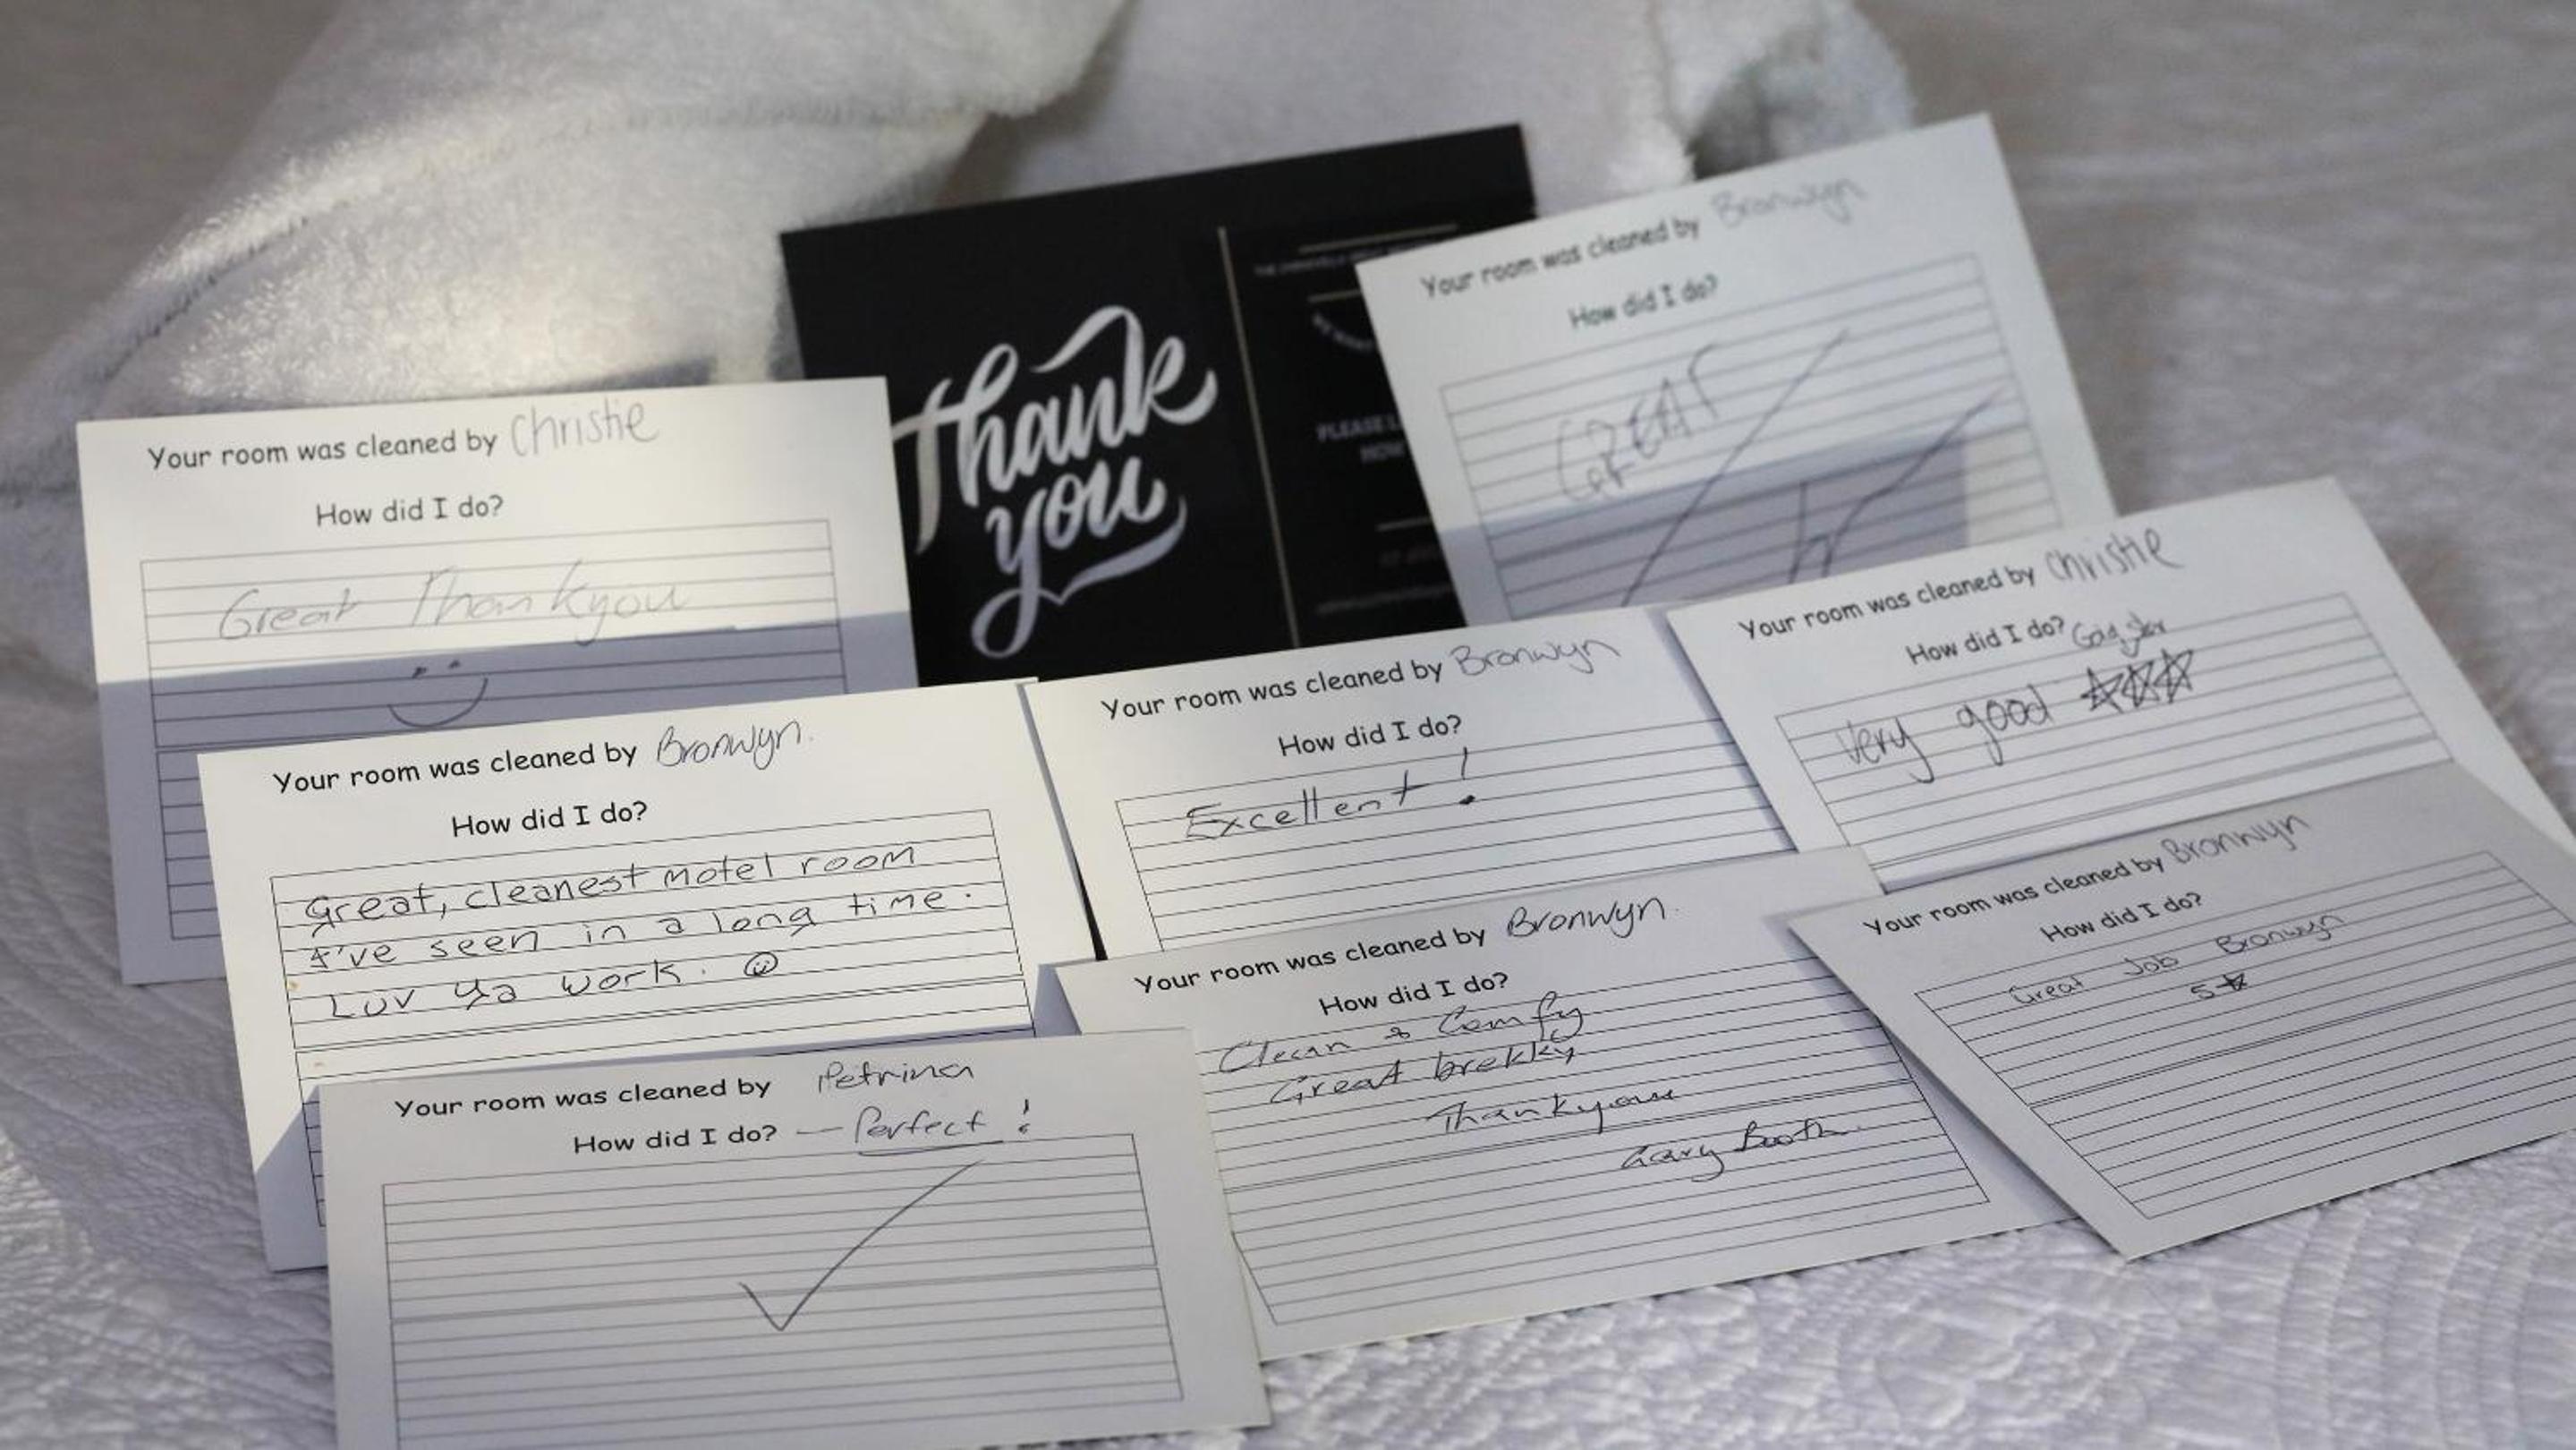 Thank
you
PLEASE
Your room was cleaned by Bronwyn
How did I do?
GREAT
Your room was cleaned by Christie
How did I do?
Great Thankyou
Your room was cleaned by Christie
How did I do?
Very good
Your room was cleaned by Bronwyn
How did I do?
Excellent!
Your room was cleaned by Bronwyn.
How did I do?
Great, cleanest motel room
I've seen in a long time.
Luv ya work. ☺
Your room was cleaned by Bronwyn
How did I do?
Great Job Bronwyn
5★
Your room was cleaned by Bronwyn.
How did I do?
Clean & Comfy
Great brekky
Thankyou
Gary Booth.
Your room was cleaned by Petrina
How did I do? — Perfect!